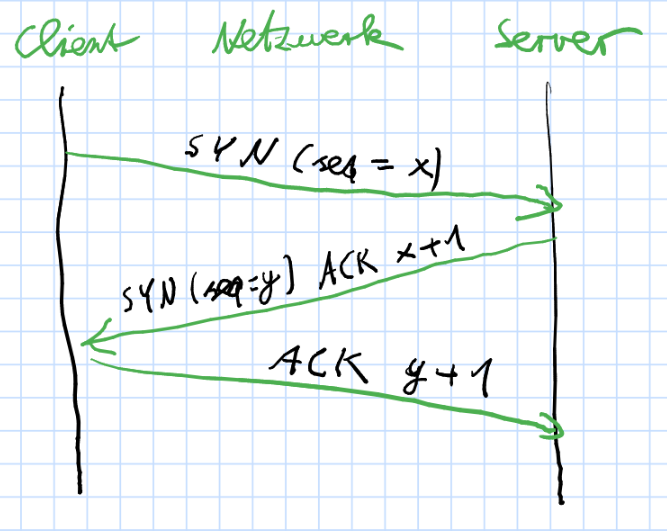 Client Netzwerk Server
SYN (seq = x)
SYN (seq=y) ACK x+1
ACK y+1